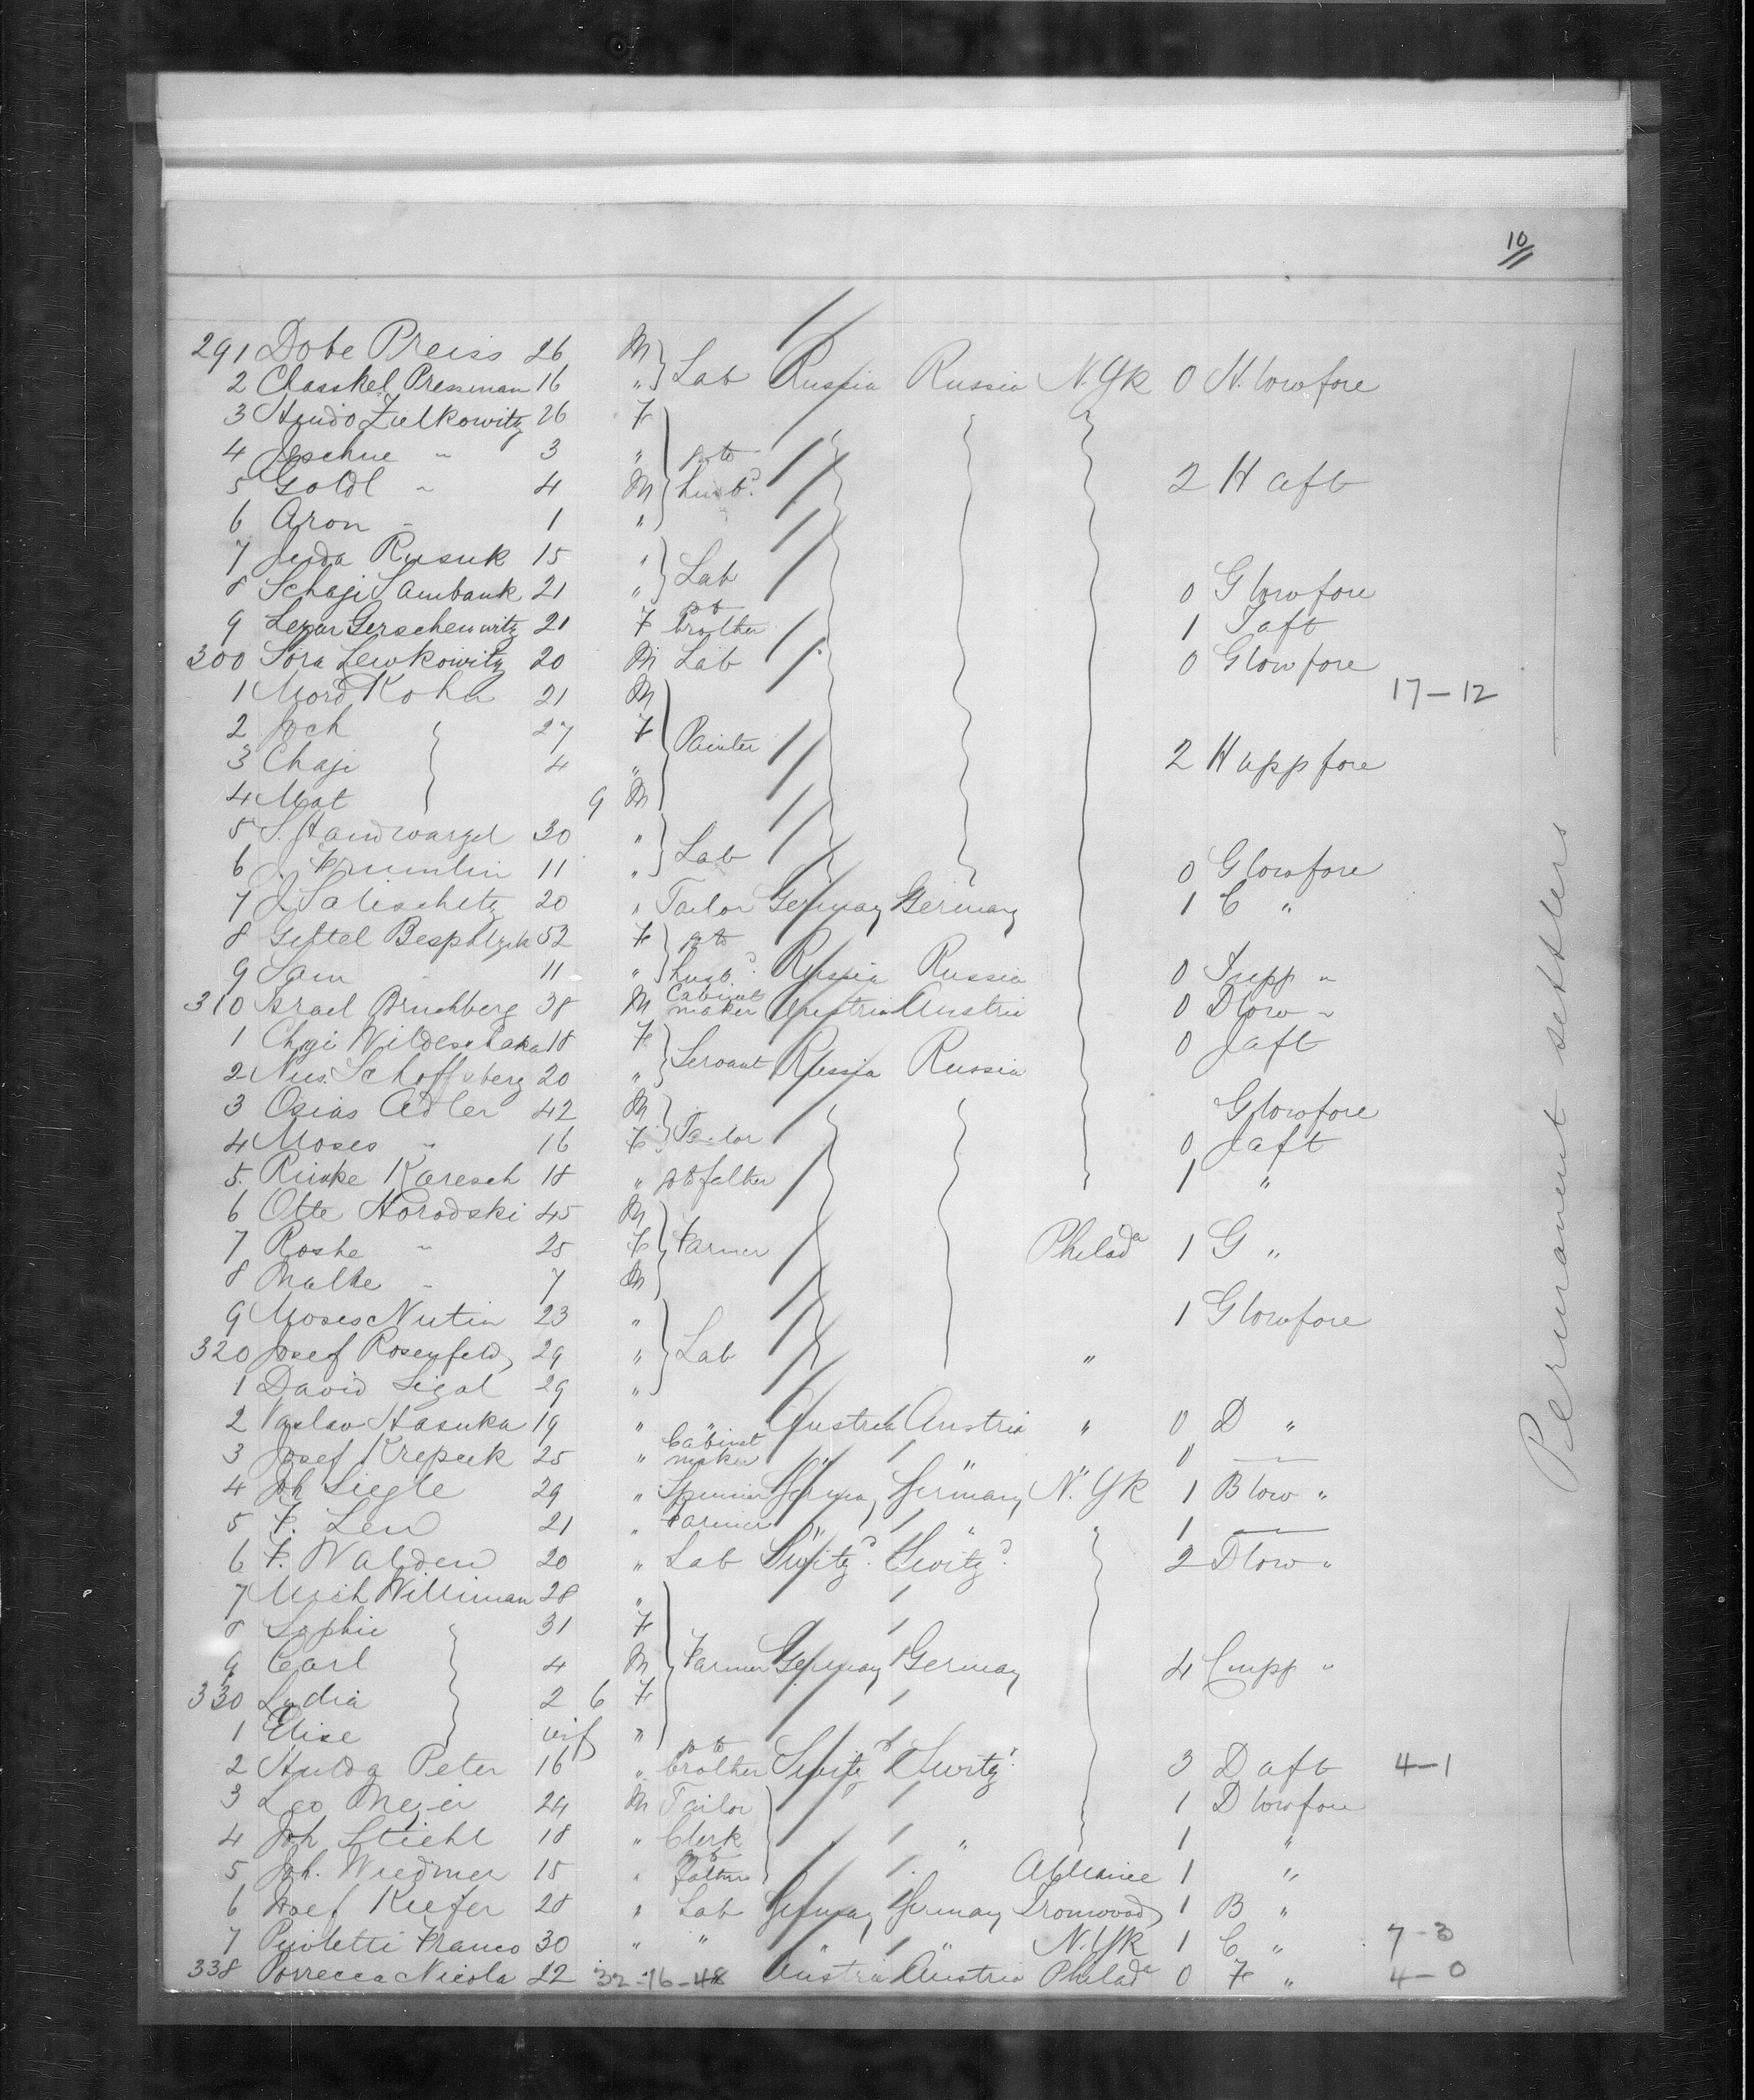 10
291 Dobe Preiss 26 M } Lab Russia Russia N.Yk 0 H. lowfore
2 Chasskel Pressman 16 "
3 Hindo Zulkowitz 26 F
4 Jeschue " 3 " } pto
5 Goldl " 4 M husbd 2 H aft
6 Aron " 1 "
7 Juda Rusuk 15 " } Lab
8 Schaji Sambank 21 " 0 G lowfore
9 Lezar Gerschenwitz 21 F pto brother 1 J aft
300 Sora Lewkowitz 20 M Lab 0 G lowfore
1 Mord Kohn 21 M 17-12
2 Joch 27 F } Painter
3 Chaji 4 " 2 H upp fore
4 Mot 9 M
5 S. Handwargel 30 " } Lab
6 J. Frumlin 11 " 0 G lowfore
7 J. Salischitz 20 " Tailor Germany Germany 1 C "
8 Gittel 52 F } pto
9 Sam " 11 " husbd Russia Russia 0 J upp "
310 Israel Bruchberg 38 M Cabinet maker Austria Austria 0 D low "
1 Chaji 18 F } Servant Russia Russia 0 J aft
2 Nus. Schoffsberg 20 "
3 Osias Adler 42 M } Tailor G lowfore
4 Moses " 16 F 0 J aft
5 Rinke Karesch 18 " pto father 1 "
6 Otte Horodski 45 M
7 Roshe " 25 F } Farmer Philada 1 G "
8 Malke " 7 M
9 Moses Nutin 23 " 1 G lowfore
320 Josef Rosenfeld 29 " } Lab "
1 David Sigal 29 "
2 Vaclav Hasuka 19 " " Austria Austria " 0 D "
3 Josef Krepcek 25 " Cabinet maker " " 0
4 Joh Siegle 29 " Spinner Germany Germany N. Yk 1 B low "
5 F. Len 21 " Farmer " " " 1
6 F. Walden 20 " Lab Switzd Switzd 2 D low "
7 Mich Williman 28 "
8 Sophie 31 F
9 Carl 4 M } Farmer Germany Germany 4 C upp "
330 Lydia 2 6 F
1 Elise inf "
2 Hulda Peter 16 " pto brother Switzd Switzd 3 D aft 4-1
3 Leo Meier 24 M Tailor 1 D lowfore
4 Joh Stiehl 18 " Clerk " " 1 "
5 Joh. Wiedmer 15 " pto father Alliance 1 "
6 Josef Kiefer 28 " Lab Germany Germany Ironwood 1 B "
7 Pioletti Franco 30 " " " " N.Yk 1 C " 7-3
338 Porrecca Nicola 22 32-16-48 Austria Austria Philada 0 F " 4-0
Permanent settlers